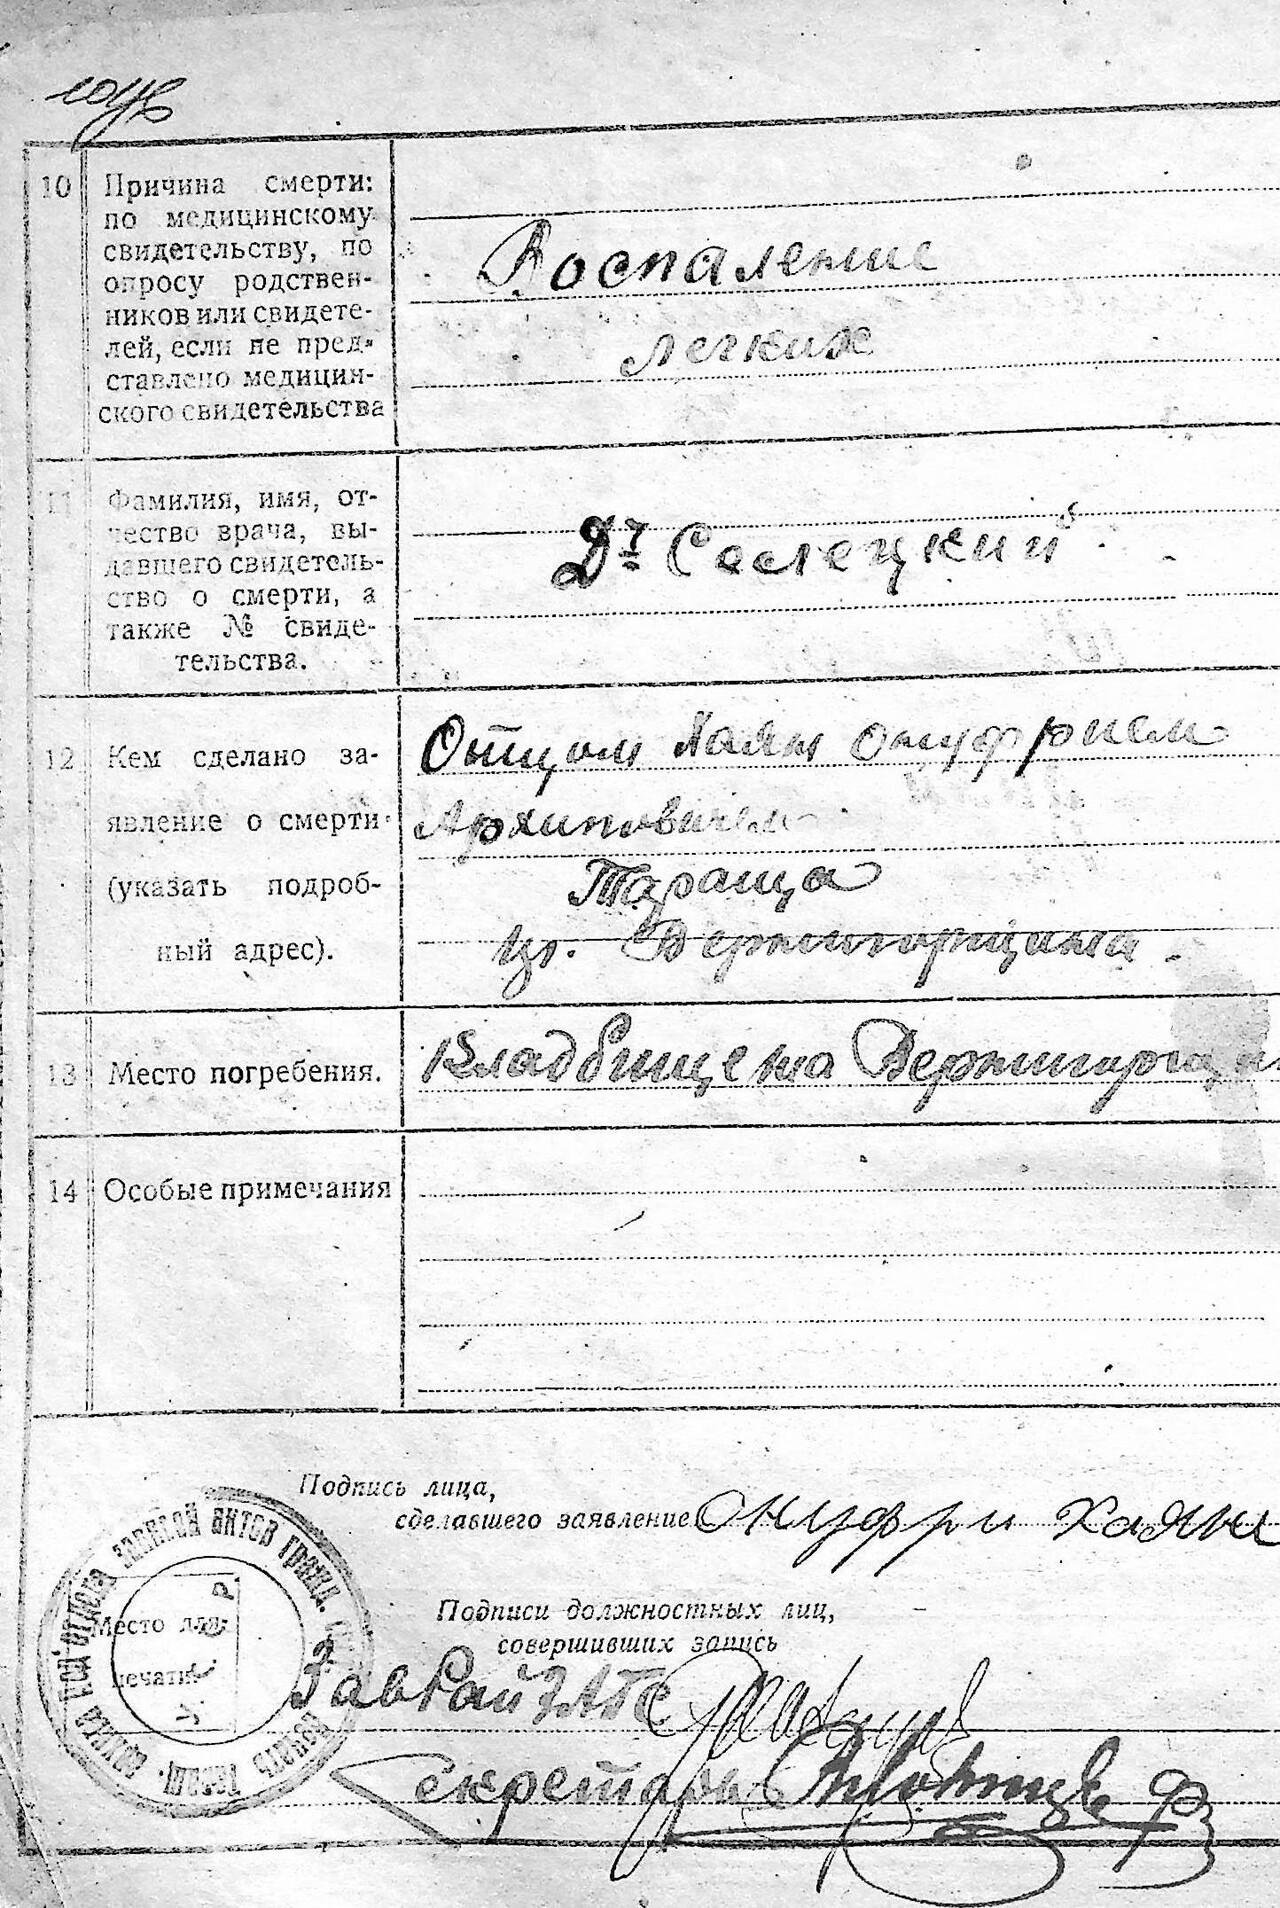 10 Причина смерти:
по медицинскому
свидетельству, по
опросу родствен-
ников или свидете-
лей, если не пред-
ставлено медицин-
ского свидетельства
Воспаление
легких
11 Фамилия, имя, от-
чество врача, вы-
давшего свидетель-
ство о смерти, а
также № свиде-
тельства.
Дт. Селецкий
12 Кем сделано за-
явление о смерти
(указать подроб-
ный адрес).
Отцом Хаян Онуфрием
Архиповичем
Тараща
ул. Вернигорщина
13 Место погребения.
Кладбище на Вернигорщин
14 Особые примечания
Подпись лица,
сделавшего заявление Онуфри Хаян
Место для
печати
У. С. С. Р.
записей актов гражд.
Подписи должностных лиц,
совершивших запись
ЗавРайЗАГС
Секретарь